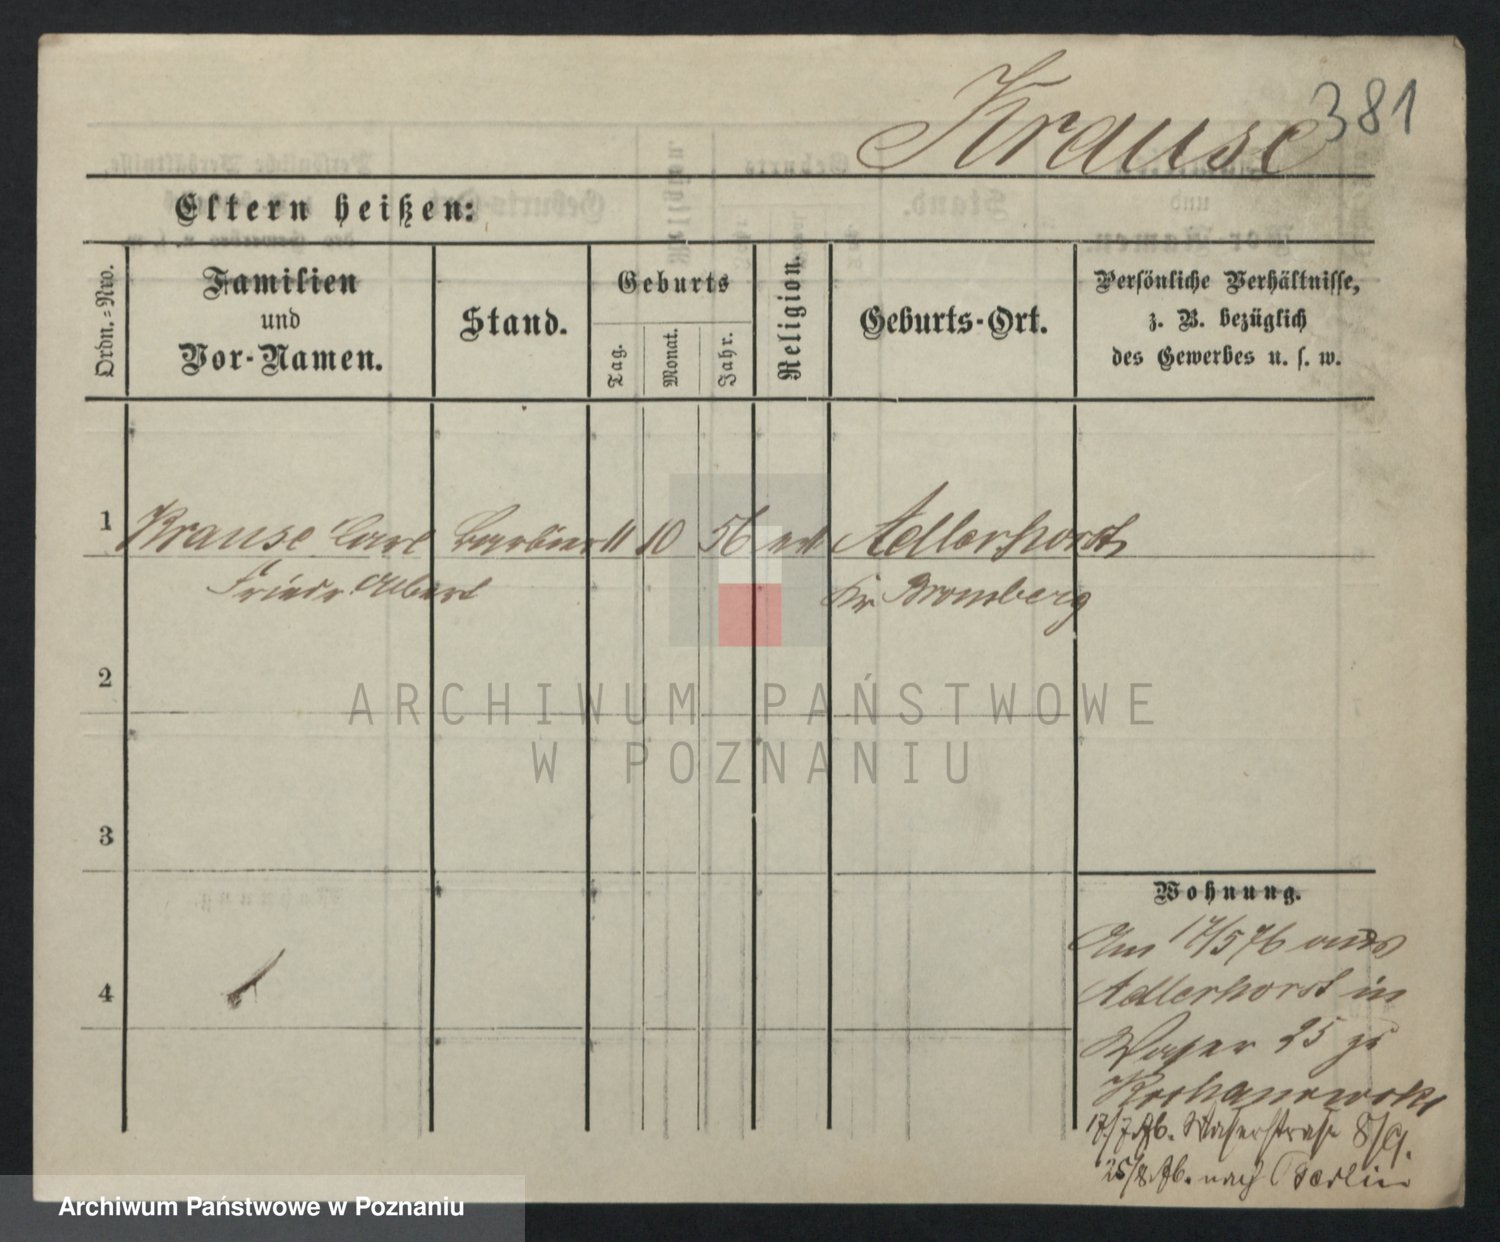 Krause 381
Eltern heißen:
Ordn.=Nro.
Familien
und
Vor-Namen.
Stand.
Geburts
Tag.
Monat.
Jahr.
Religion.
Geburts-Ort.
Persönliche Verhältnisse,
z. B. bezüglich
des Gewerbes u. s. w.
1 Krause Carl Barbier 11 10 56 Adlerhorst
Friedr Albert Kr Bromberg
2
ARCHIWUM PAŃSTWOWE
W POZNANIU
3
Wohnung.
Am 17/5 76 aus
4 Adlerhorst in
Wasser 25 zu
17/7.76. Wasserstraße 8/9.
25/8.76. nach Berlin
Archiwum Państwowe w Poznaniu